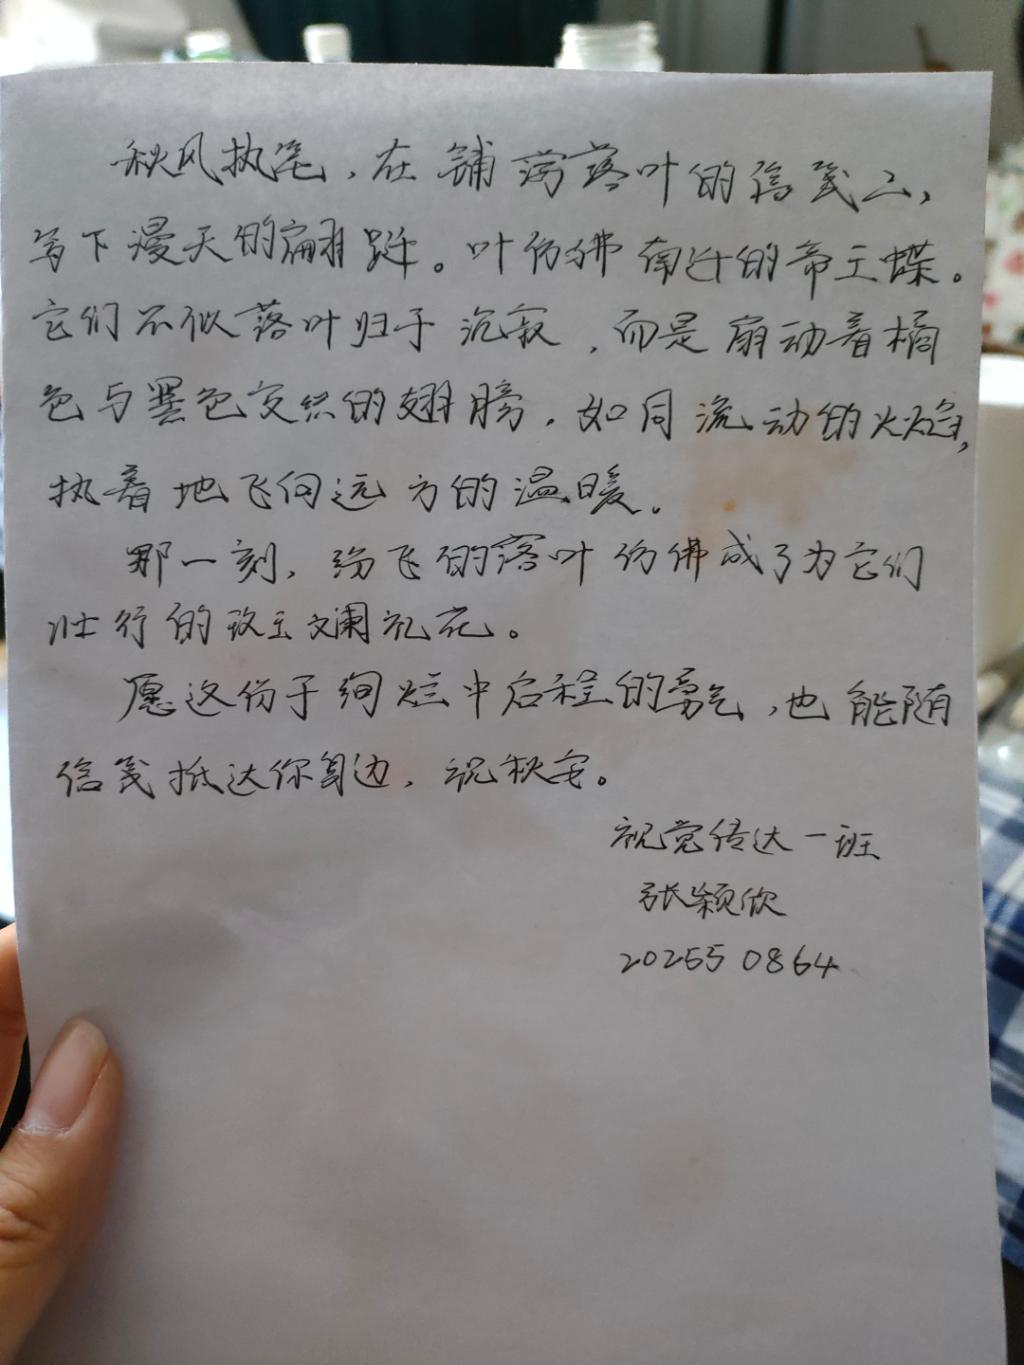 秋风执笔，在铺满落叶的信笺上，
写下漫天的翩跹。叶仿佛南迁的帝王蝶。
它们不似落叶归于沉寂，而是扇动着橘
色与墨色交织的翅膀，如同流动的火焰，
执着地飞向远方的温暖。
那一刻，纷飞的落叶仿佛成了为它们
壮行的玫立斓礼花。
愿这份于绚烂中启程的勇气，也能随
信笺抵达你身边，祝秋安。
视觉传达一班
张颖欣
202550864